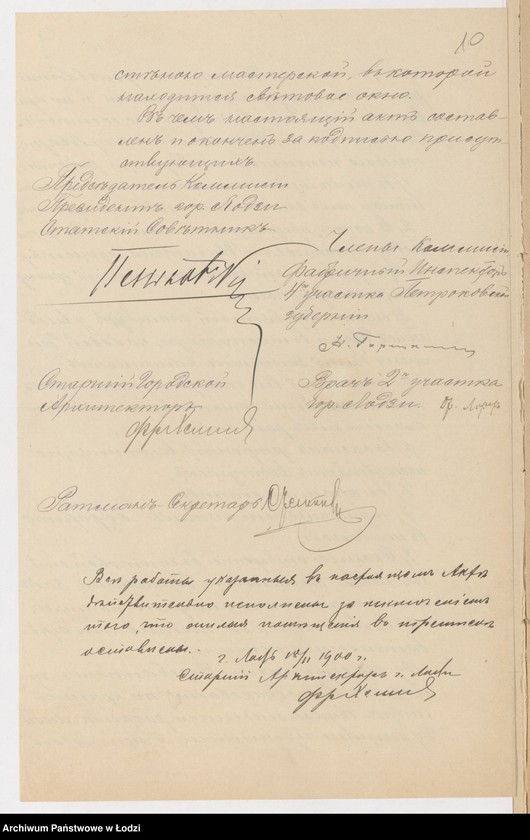 10
стѣною мастерской, въ которой
находится свѣтовое окно.
Въ чемъ настоящій актъ состав-
ленъ и оконченъ за подписью присут-
ствующихъ.
Предсѣдатель Коммисіи
Президентъ гор. Лодзи
Статскій Совѣтникъ
Пеньковскій
Члены Коммисіи
Фабричный Инспекторъ
4го участка Петроковской
губерніи
Старшій Городской
Архитекторъ
Фр Хелминс
Врачъ 2го участка
гор. Лодзи. Др.
Ратманъ-Секретарь
Всѣ работы указанныя въ настоящемъ Актѣ
дѣйствительно исполнены за
того, что жилыя помѣщенія въ
оставлены.
г. Лодзь 1900 г.
Старшій Архитекторъ г. Лодзи
Фр Хелминс
Archiwum Państwowe w Łodzi